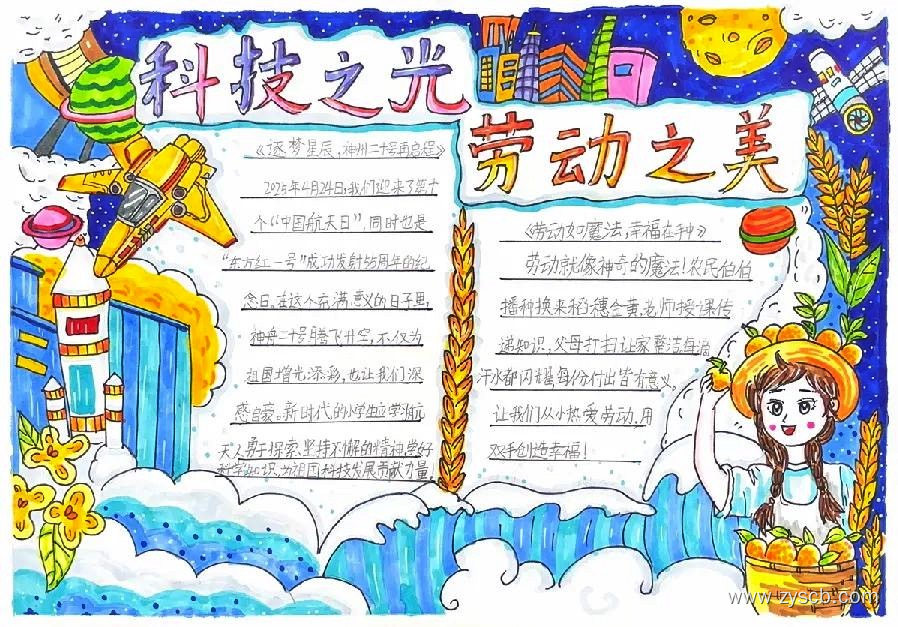 科技之光
《逐梦星辰,神州二十号再启程》
2025年4月24日,我们迎来了第十
个“中国航天日”,同时也是
“东方红一号”成功发射55周年的纪
念日,在这个充满意义的日子里,
神舟二十号腾飞升空,不仅为
祖国增光添彩,也让我们深
感自豪。新时代的小学生应学习航
天人勇于探索、坚持不懈的精神,学好
科学知识,为祖国科技发展贡献力量,
劳动之美
《劳动如魔法,幸福在种》
劳动就像神奇的魔法!农民伯伯
播种换来稻穗金黄,老师授课传
递知识,父母打扫让家整洁,每滴
汗水都闪耀,每份付出皆有意义,
让我们从小热爱劳动,用
双手创造幸福!
www.zyscb.com